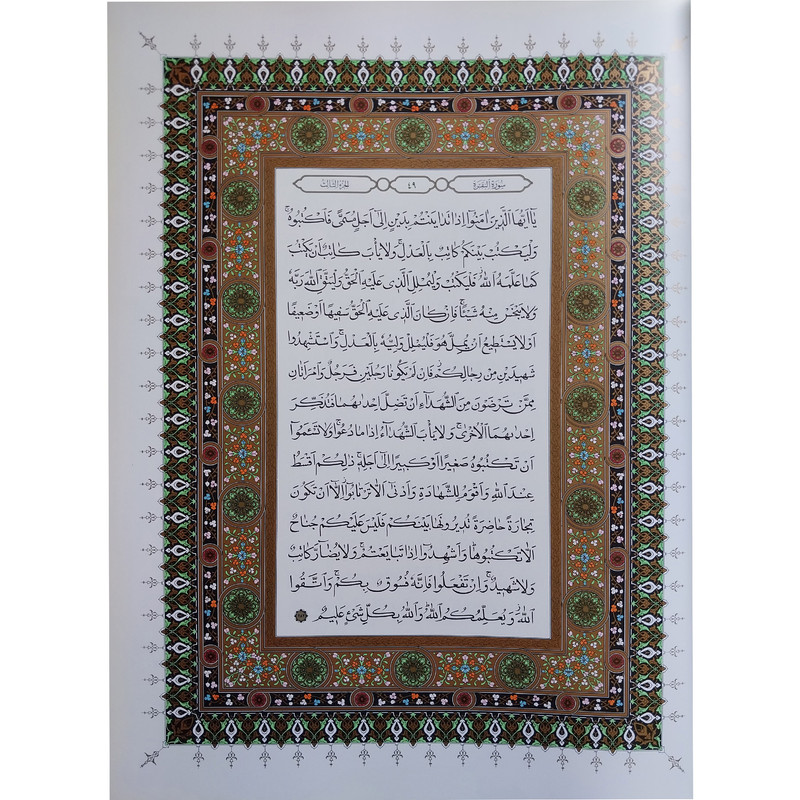 سورة البقرة ٤٩ الجزء الثالث
يَا أَيُّهَا الَّذِينَ آمَنُوا إِذَا تَدَايَنْتُمْ بِدَيْنٍ إِلَىٰ أَجَلٍ مُسَمًّى فَاكْتُبُوهُ
وَلْيَكْتُبْ بَيْنَكُمْ كَاتِبٌ بِالْعَدْلِ وَلَا يَأْبَ كَاتِبٌ أَنْ يَكْتُبَ
كَمَا عَلَّمَهُ اللَّهُ فَلْيَكْتُبْ وَلْيُمْلِلِ الَّذِي عَلَيْهِ الْحَقُّ وَلْيَتَّقِ اللَّهَ رَبَّهُ
وَلَا يَبْخَسْ مِنْهُ شَيْئًا فَإِنْ كَانَ الَّذِي عَلَيْهِ الْحَقُّ سَفِيهًا أَوْ ضَعِيفًا
أَوْ لَا يَسْتَطِيعُ أَنْ يُمِلَّ هُوَ فَلْيُمْلِلْ وَلِيُّهُ بِالْعَدْلِ وَاسْتَشْهِدُوا
شَهِيدَيْنِ مِنْ رِجَالِكُمْ فَإِنْ لَمْ يَكُونَا رَجُلَيْنِ فَرَجُلٌ وَامْرَأَتَانِ
مِمَّنْ تَرْضَوْنَ مِنَ الشُّهَدَاءِ أَنْ تَضِلَّ إِحْدَاهُمَا فَتُذَكِّرَ
إِحْدَاهُمَا الْأُخْرَىٰ وَلَا يَأْبَ الشُّهَدَاءُ إِذَا مَا دُعُوا وَلَا تَسْأَمُوا
أَنْ تَكْتُبُوهُ صَغِيرًا أَوْ كَبِيرًا إِلَىٰ أَجَلِهِ ذَٰلِكُمْ أَقْسَطُ
عِنْدَ اللَّهِ وَأَقْوَمُ لِلشَّهَادَةِ وَأَدْنَىٰ أَلَّا تَرْتَابُوا إِلَّا أَنْ تَكُونَ
تِجَارَةً حَاضِرَةً تُدِيرُونَهَا بَيْنَكُمْ فَلَيْسَ عَلَيْكُمْ جُنَاحٌ
أَلَّا تَكْتُبُوهَا وَأَشْهِدُوا إِذَا تَبَايَعْتُمْ وَلَا يُضَارَّ كَاتِبٌ
وَلَا شَهِيدٌ وَإِنْ تَفْعَلُوا فَإِنَّهُ فُسُوقٌ بِكُمْ وَاتَّقُوا
اللَّهَ وَيُعَلِّمُكُمُ اللَّهُ وَاللَّهُ بِكُلِّ شَيْءٍ عَلِيمٌ